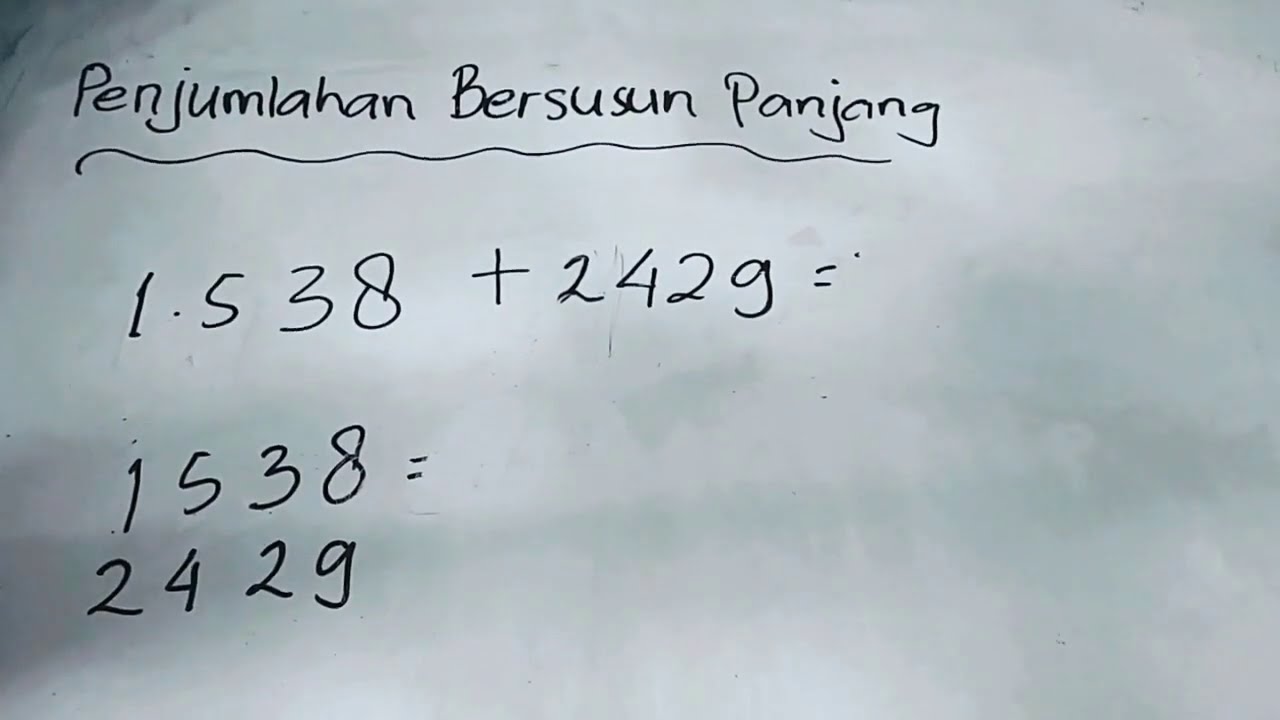 Penjumlahan Bersusun Panjang
1.538 + 2429 =
1538 =
2429